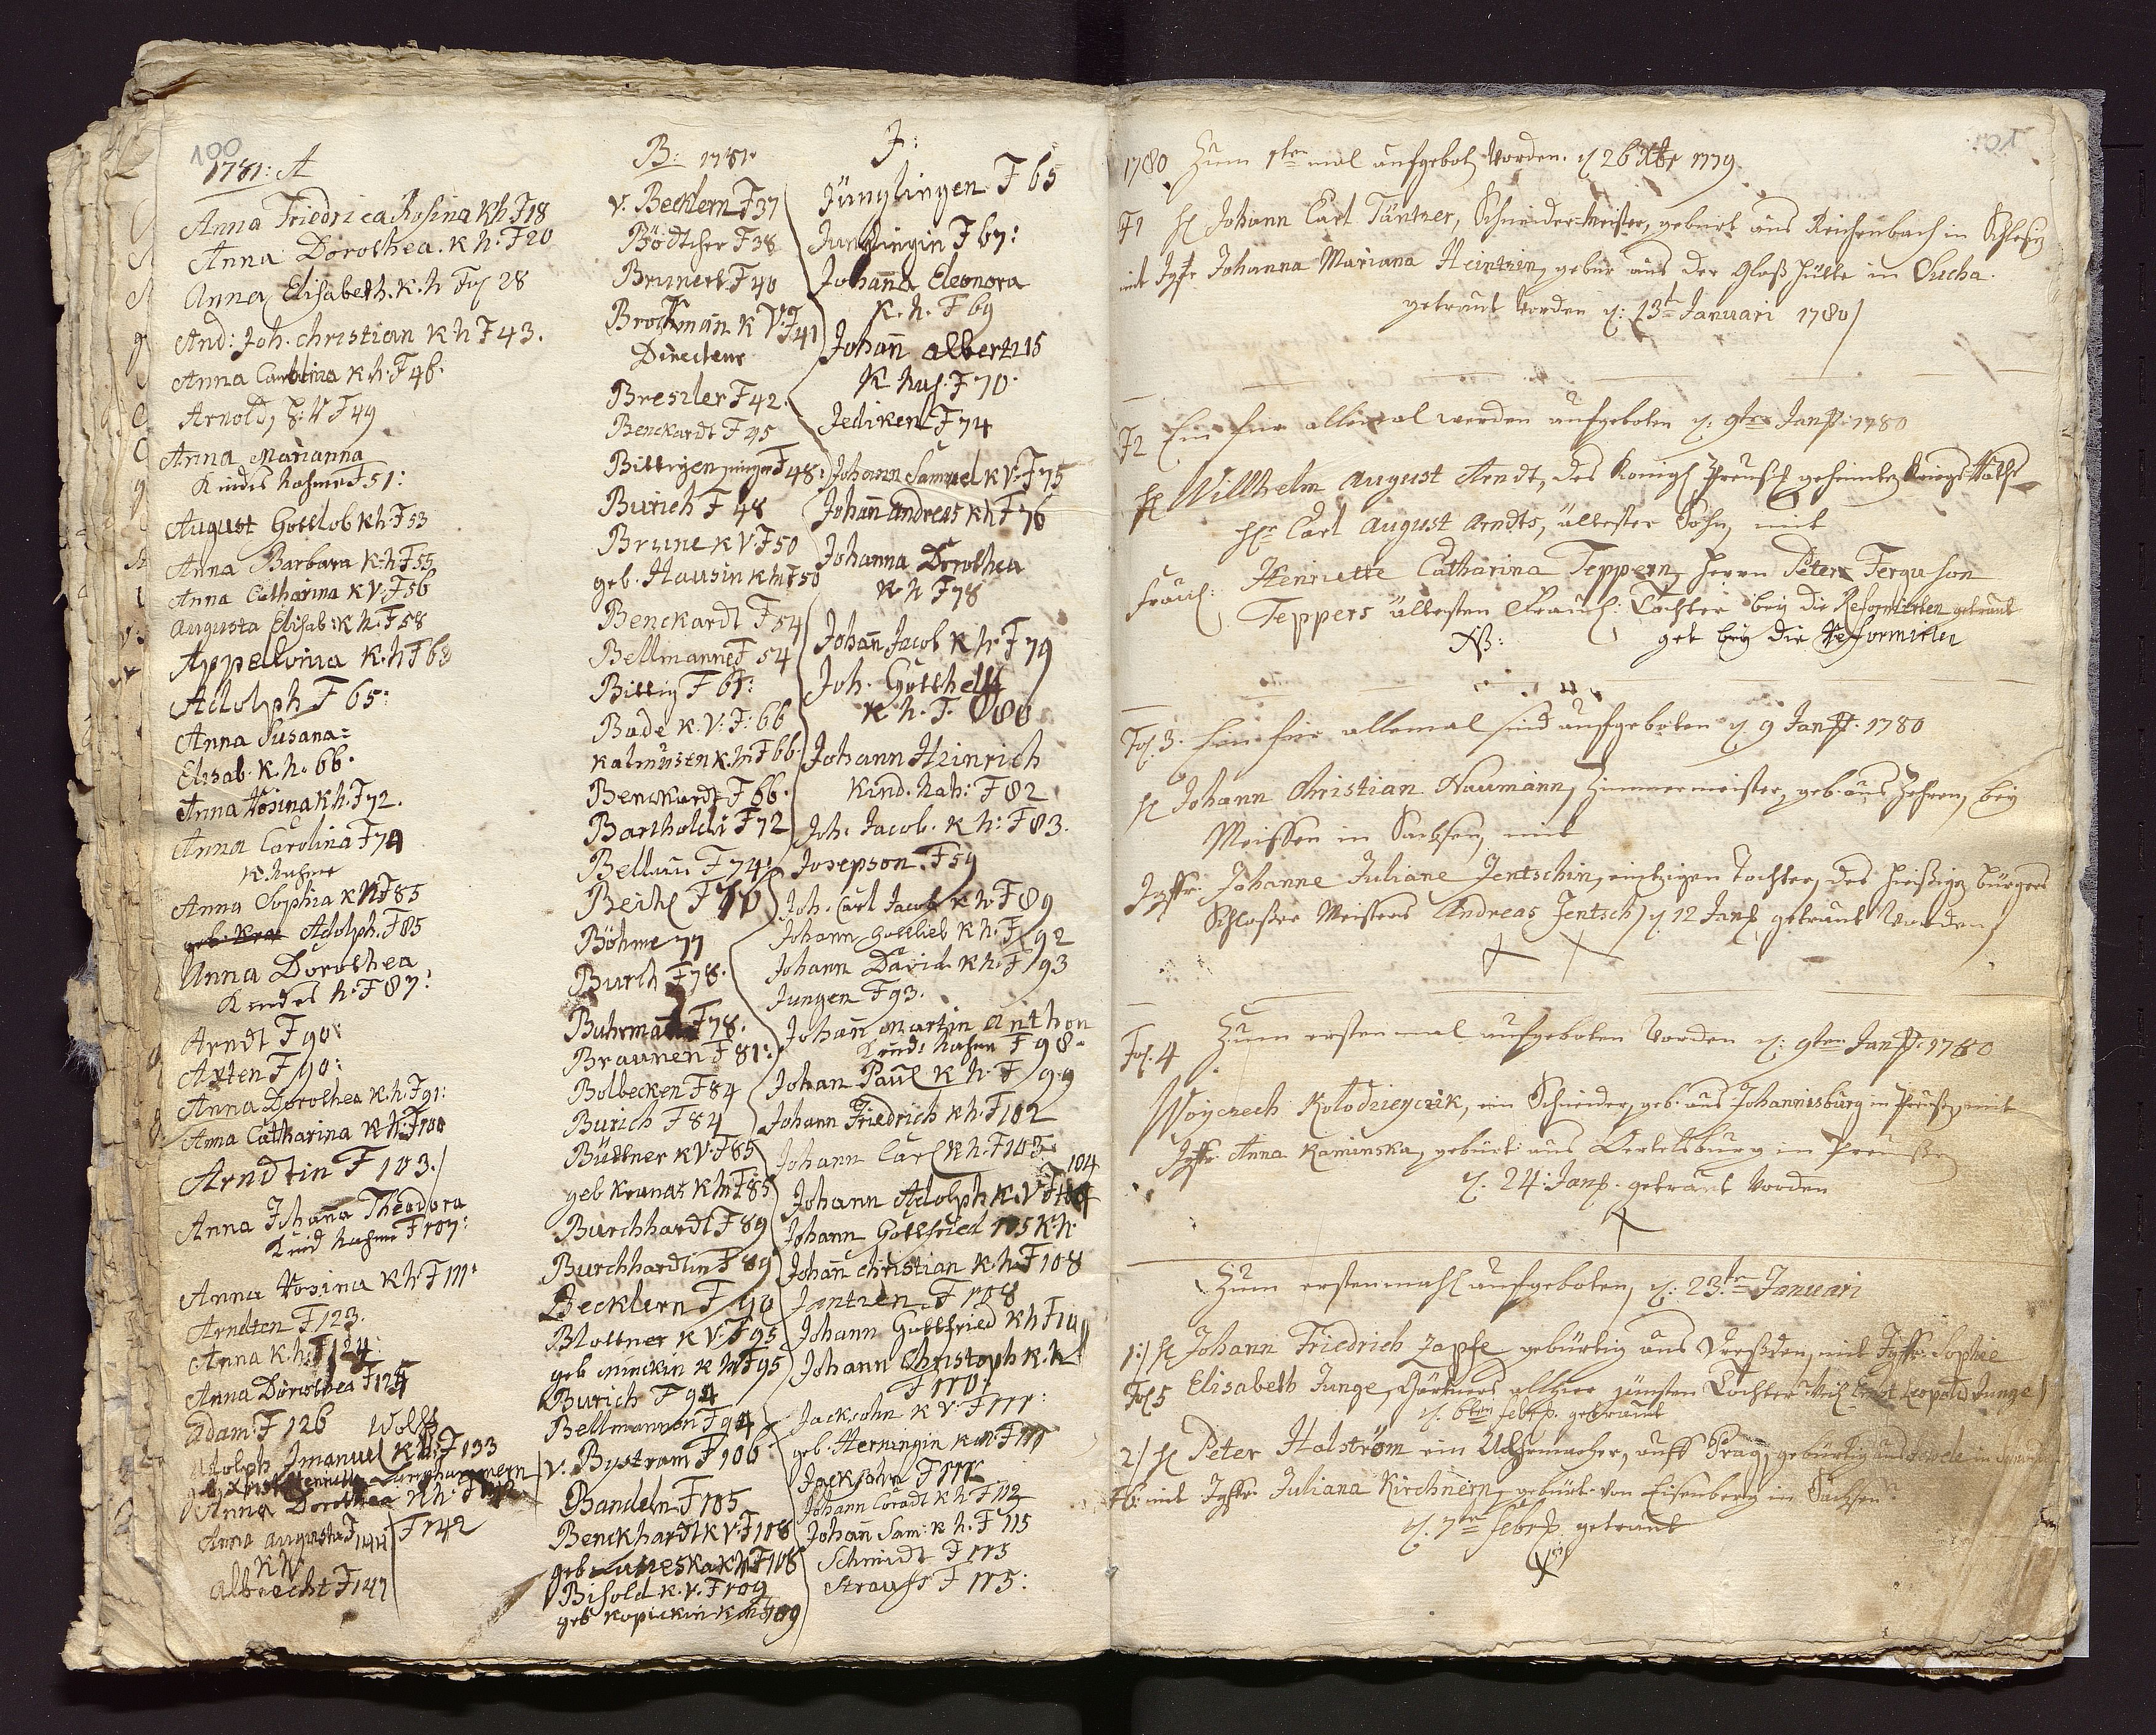 100
1781: A
Anna Friedrica Rosina Kh F 18
Anna Dorothea. K h. F 20
Anna Elisabeth. K. h Fol 28
And: Joh. christian K h F 43.
Anna Carolina K h. F 46.
Arnold, F 49
Anna Marianna
Kindes Nahme F 51:
August Gottlob k h. F 53
Anna Barbara K: h F 55
Anna Catharina K V. F 56
Augusta Elisab: K h. F 58
Appellonia K. h F 63
Adolph F 65:
Anna Susana:
Elisab. K. h. 66.
Anna Rosina K h. F 72.
Anna Carolina F 74
K Nahme
Anna Sophia k N F 85
Adolph. F 85
Anna Dorothea
Kindes N. F 87:
Arndt F 90:
Axten F 90:
Anna Dorothea K. h. F 91:
Anna Catharina K h. F 100
Arndtin F 103.
Anna Johana Theodora
Kind Nahme F 107:
Anna Rosina K h. F 111.
Arndten F 123.
Anna K. h. F 124:
Anna Dorothea F 125
Adam. F 126 Wolff
Adolph Imanuel K V. F 133
Anna Dorothea K h. F 142
Anna Augusta F 144 F 142
K N
Albrecht F 147
B: 1781.
v. Becklern F 37
Bödtcher F 38
Brunert F 40
Brockman K V. F 41
Directeur
Breszler F 42.
Benckardt F 45
F 48:
Burich F 48
Brune K V. F 50
geb. Hausin K h F 50
Benckardt F 54
Bellmanne F 54
Bittig F 61:
Bade K. V: F: 66
Kalmusen K. h F 66.
Benckardt F. 66.
Bartholdi F 72
Bellau F 74:
Böhme 77
Burch F 78.
Buhrman F 78.
Braunen F 81:
Bolbecken F 84
Burich F 84
Büttner K V. F 85
geb Krunas K h F 85
Burchhardt F 89
Burchhardtin F 89
Becklern F 90
Blottner K V. F 95
geb Minckin K h F 95
Burich F 94
Bellmannen F 94
v. Bystram F 106
Bandeln F 105
Benckhardt K V. F 108
geb Luneska K h F 108
Bisold K. V. F 109
geb Kopickin K h F 109
J:
Jünglingen F 65
Junglingin F 67:
Johana Eleonora
K. h. F 69
Johañ Albert 15
K Nah. F 70.
Jediken F 74
Johann Samuel K V. F 75
Johañ Andreas K h F 76
Johanna Dorothea
K h F 78
Johañ Jacob K h. F 79
Joh. Gotthelf
K h. F. 80
Johann Heinrich
Kind. Nah: F 82
Joh. Jacob. K h: F 83.
Josepson. F 59
Joh. Carl Jacob K h. F 89
Johann Gottlieb K h. F 92
Johann David K h. F 93
Jungen F 93.
Johañ Martin Anthon
Kinds Nahme F 98.
Johan Paul K h. F 99
Johann Friedrich K h. F 102
Johann Carl K h. F 103
104
Johann Adolph K. V F
Johann Gottfried 105 K. h.
Johañ christian K. h. F 108
Jantzen F 108
Johann Gottfried K h F
Johann Christoph K. h
F 110:
Jacksohn K V. F 111:
geb. Herningin K h. F 111
Jacksohn F 111
Johann Coradt K h F 112
Johañ Sam: K h. F 115
Schmidt F 115
Strauss F 115:
1780 Zum 1ten mal aufgebott worden. d 26 Xbr 1779.
F1 H Johann Carl Täntzer, Schneider-Meister, gebürt aus Reichenbach in Schlesig
mit Jgfr Johanna Mariana Heintzin, gebür aus der Glas Hütte in Sucha.
getraut worden d: 13ten Januari 1780
F2 Ein für allemal werden aufgeboten d. 9ten Jan 1780
H Willhelm August Arndt, des Königl Preusch geheimten Kriegs Raths
H Carl August Arndts, ältester Sohn, mit
Fräul: Henriette Catharina Teppern, Herrn Peter Ferguson
Teppers ältesten Fräul: Tochter bey die Reformirten getraut
NB: get bey die Reformirten
Fol 3. Ein für allemal sind aufgeboten d 9 Jan. 1780
H Johann Christian Naumann, Zimmermeister, geb. aus Zehren, bey
Meissen in Sachsen, mit
Jgfr. Johanne Juliane Jentschin, eintzigen Tochter, des hießigen Bürgers
Schlosser Meisters Andreas Jentsch, d 12 Jan getraut worden
Fol. 4 Zum erstenmal aufgeboten worden d: 9ten Jan. 1780
Woyczech Kolodzieyczik, ein Schneider, geb. aus Johannisburg in Preuß, mit
Jgfr. Anna Kaminska, gebürt aus Oertelsburg in Preußen
d. 24. Jan. getraut worden
Zum erstenmahl aufgeboten, d: 23ten Januari
1:) H Johann Friedrich Zapfe gebürtig aus Dreßden, mit Jgfr. Sophie
Fol 5 Elisabeth Junge, Gärtners allhier jüngsten Tochter Ernst Leopold Junge
d. 6ten Febr. getraut
2) H Peter Holström ein Uhrmacher, auff Prag, gebürtig aus
F6. mit Jgfr. Juliana Kirchnern, gebürt von Eisenberg in Sachsen.
d. 7ten Febr. getraut